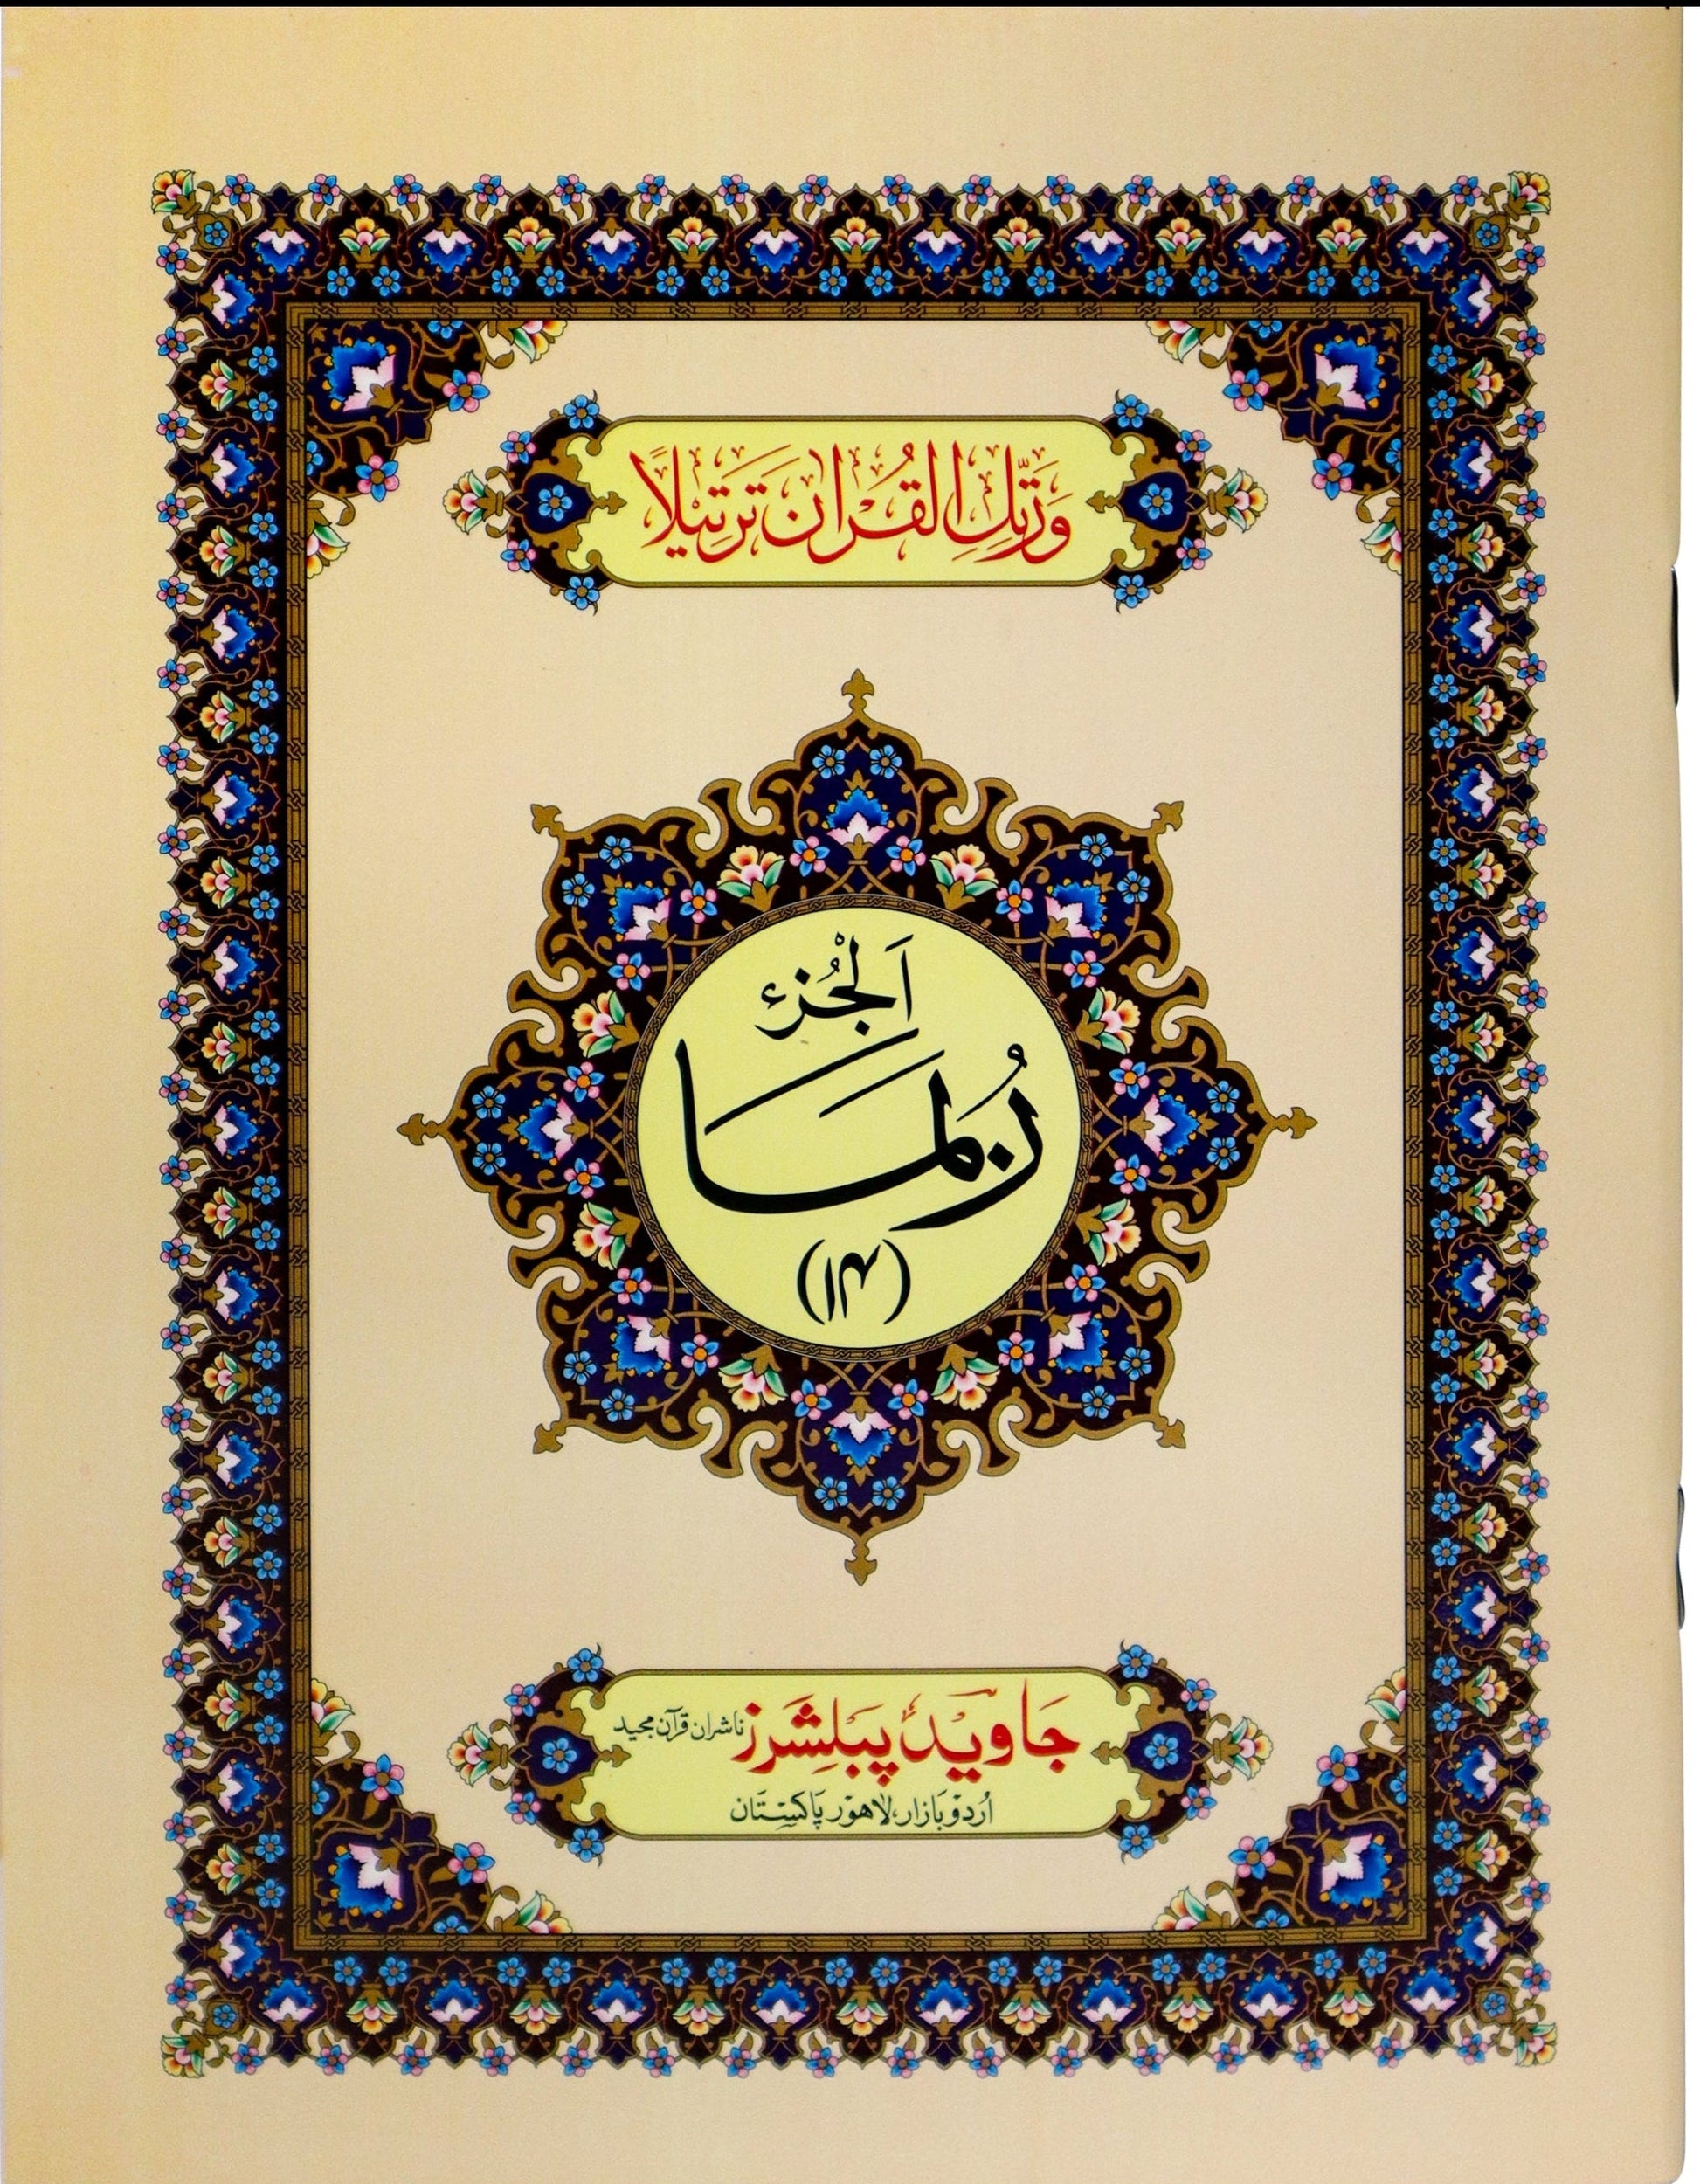 وَرَتِّلِ الْقُرْاٰنَ تَرْتِيْلًا
اَلْجُزْءُ
رُبَمَا
(۱۴)
جاوید پبلشرز ناشران قرآن مجید
اُردو بازار، لاہور پاکستان